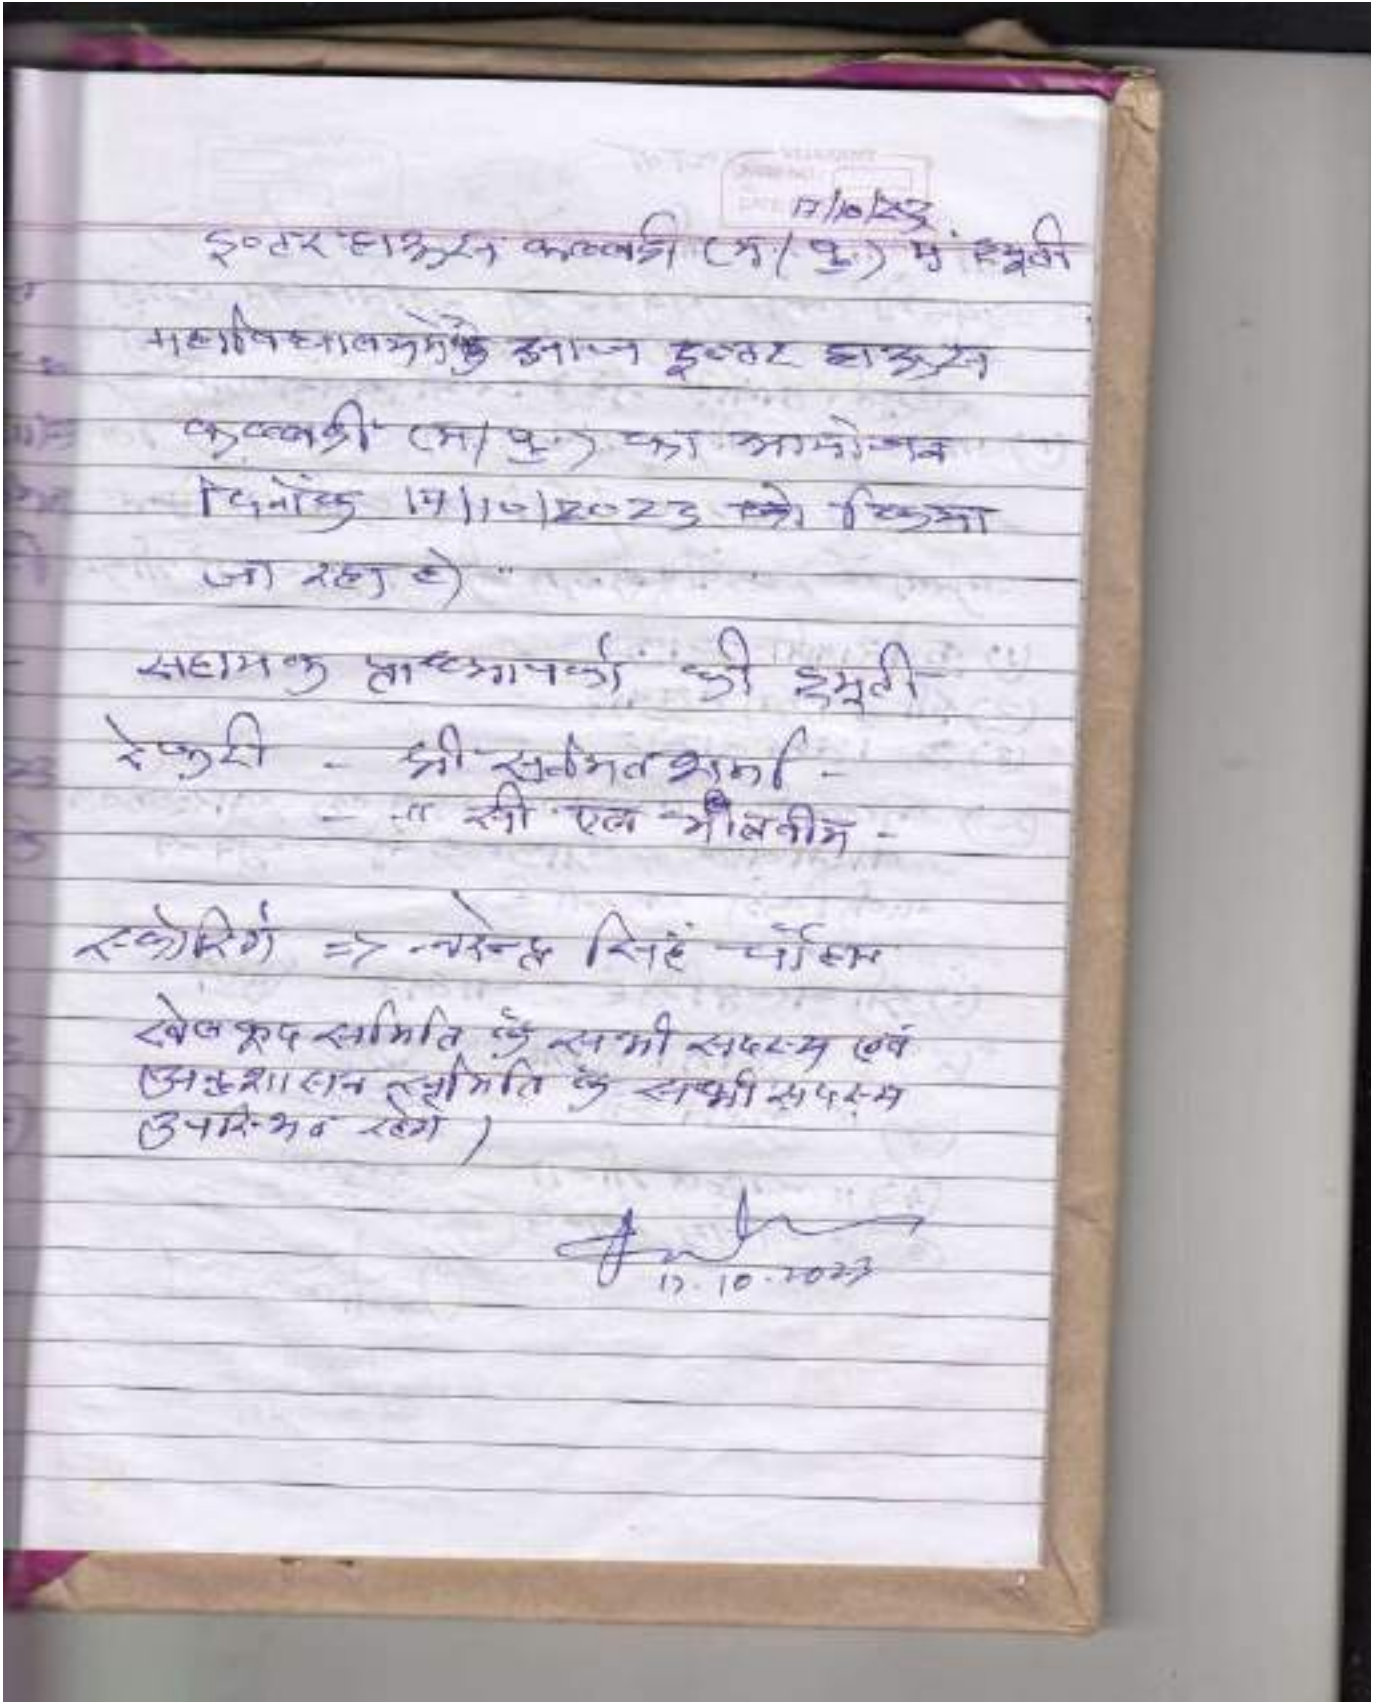 17/10/23
इन्टर हाऊस कब्बडी (म/पु.) में ड्यूटी
महाविद्यालय में आज इन्टर हाऊस
कब्बडी (म/पु.) का आयोजन
दिनांक 17/10/2023 को किया
जा रहा है।
सहायक प्राध्यापकों की ड्यूटी
रेफ्री - श्री शर्मा -
- -" सी एल मालवीय -
स्कोरिंग => नरेन्द्र सिंह चौहान
खेलकूद समिति के सभी सदस्य एवं
अनुशासन समिति के सभी सदस्य
उपस्थित रहेंगे।
17.10.2023